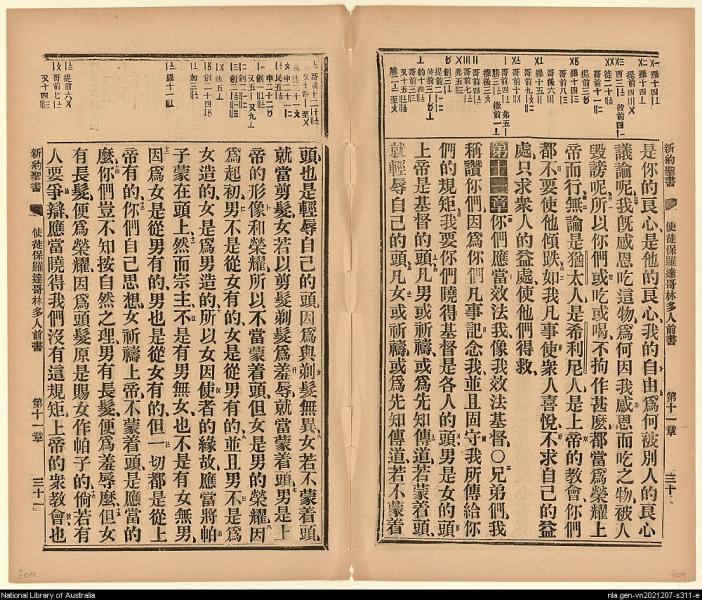 新約聖書 使徒保羅達哥林多人前書 第十一章 三十
是你的良心是他的良心我的自由爲何被別人的良心
議論呢我旣感恩吃這物爲何因我感恩而吃之物被人
毀謗呢所以你們或吃或喝不拘作甚麽都當爲榮耀上
帝而行無論是猶太人是希利尼人是上帝的教會你們
都不要使他傾跌如我凡事使衆人喜悅不求自己的益
處只求衆人的益處使他們得救
第十一章你們應當效法我像我效法基督〇兄弟們我
稱讚你們因爲你們凡事記念我並且固守我所傳給你
們的規矩我要你們曉得基督是各人的頭男是女的頭
上帝是基督的頭凡男或祈禱或爲先知傳道若蒙着頭
就輕辱自己的頭凡女或祈禱或爲先知傳道若不蒙着
頭也是輕辱自己的頭因爲與剃髮無異女若不蒙着頭
就當剪髮女若以剪髮剃髮爲羞辱就當蒙着頭男是上
帝的形像和榮耀所以不當蒙着頭但女是男的榮耀因
爲起初男不是從女有的女是從男有的並且男不是爲
女造的女是爲男造的所以女因使者的緣故應當將帕
子蒙在頭上然而宗主不是有男無女也不是有女無男
因爲女是從男有的男也是從女有的但一切都是從上
帝有的你們自己思想女祈禱上帝不蒙着頭是應當的
麽你們豈不知按自然之理男有長髮便爲羞辱麽但女
有長髮便爲榮耀因爲頭髮原是賜女作帕子的倘若有
人要爭辯應當曉得我們沒有這規矩上帝的衆教會也
新約聖書 使徒保羅達哥林多人前書 第十一章 三十一
309
309
National Library of Australia
nla.gen-vn2021207-s311-e